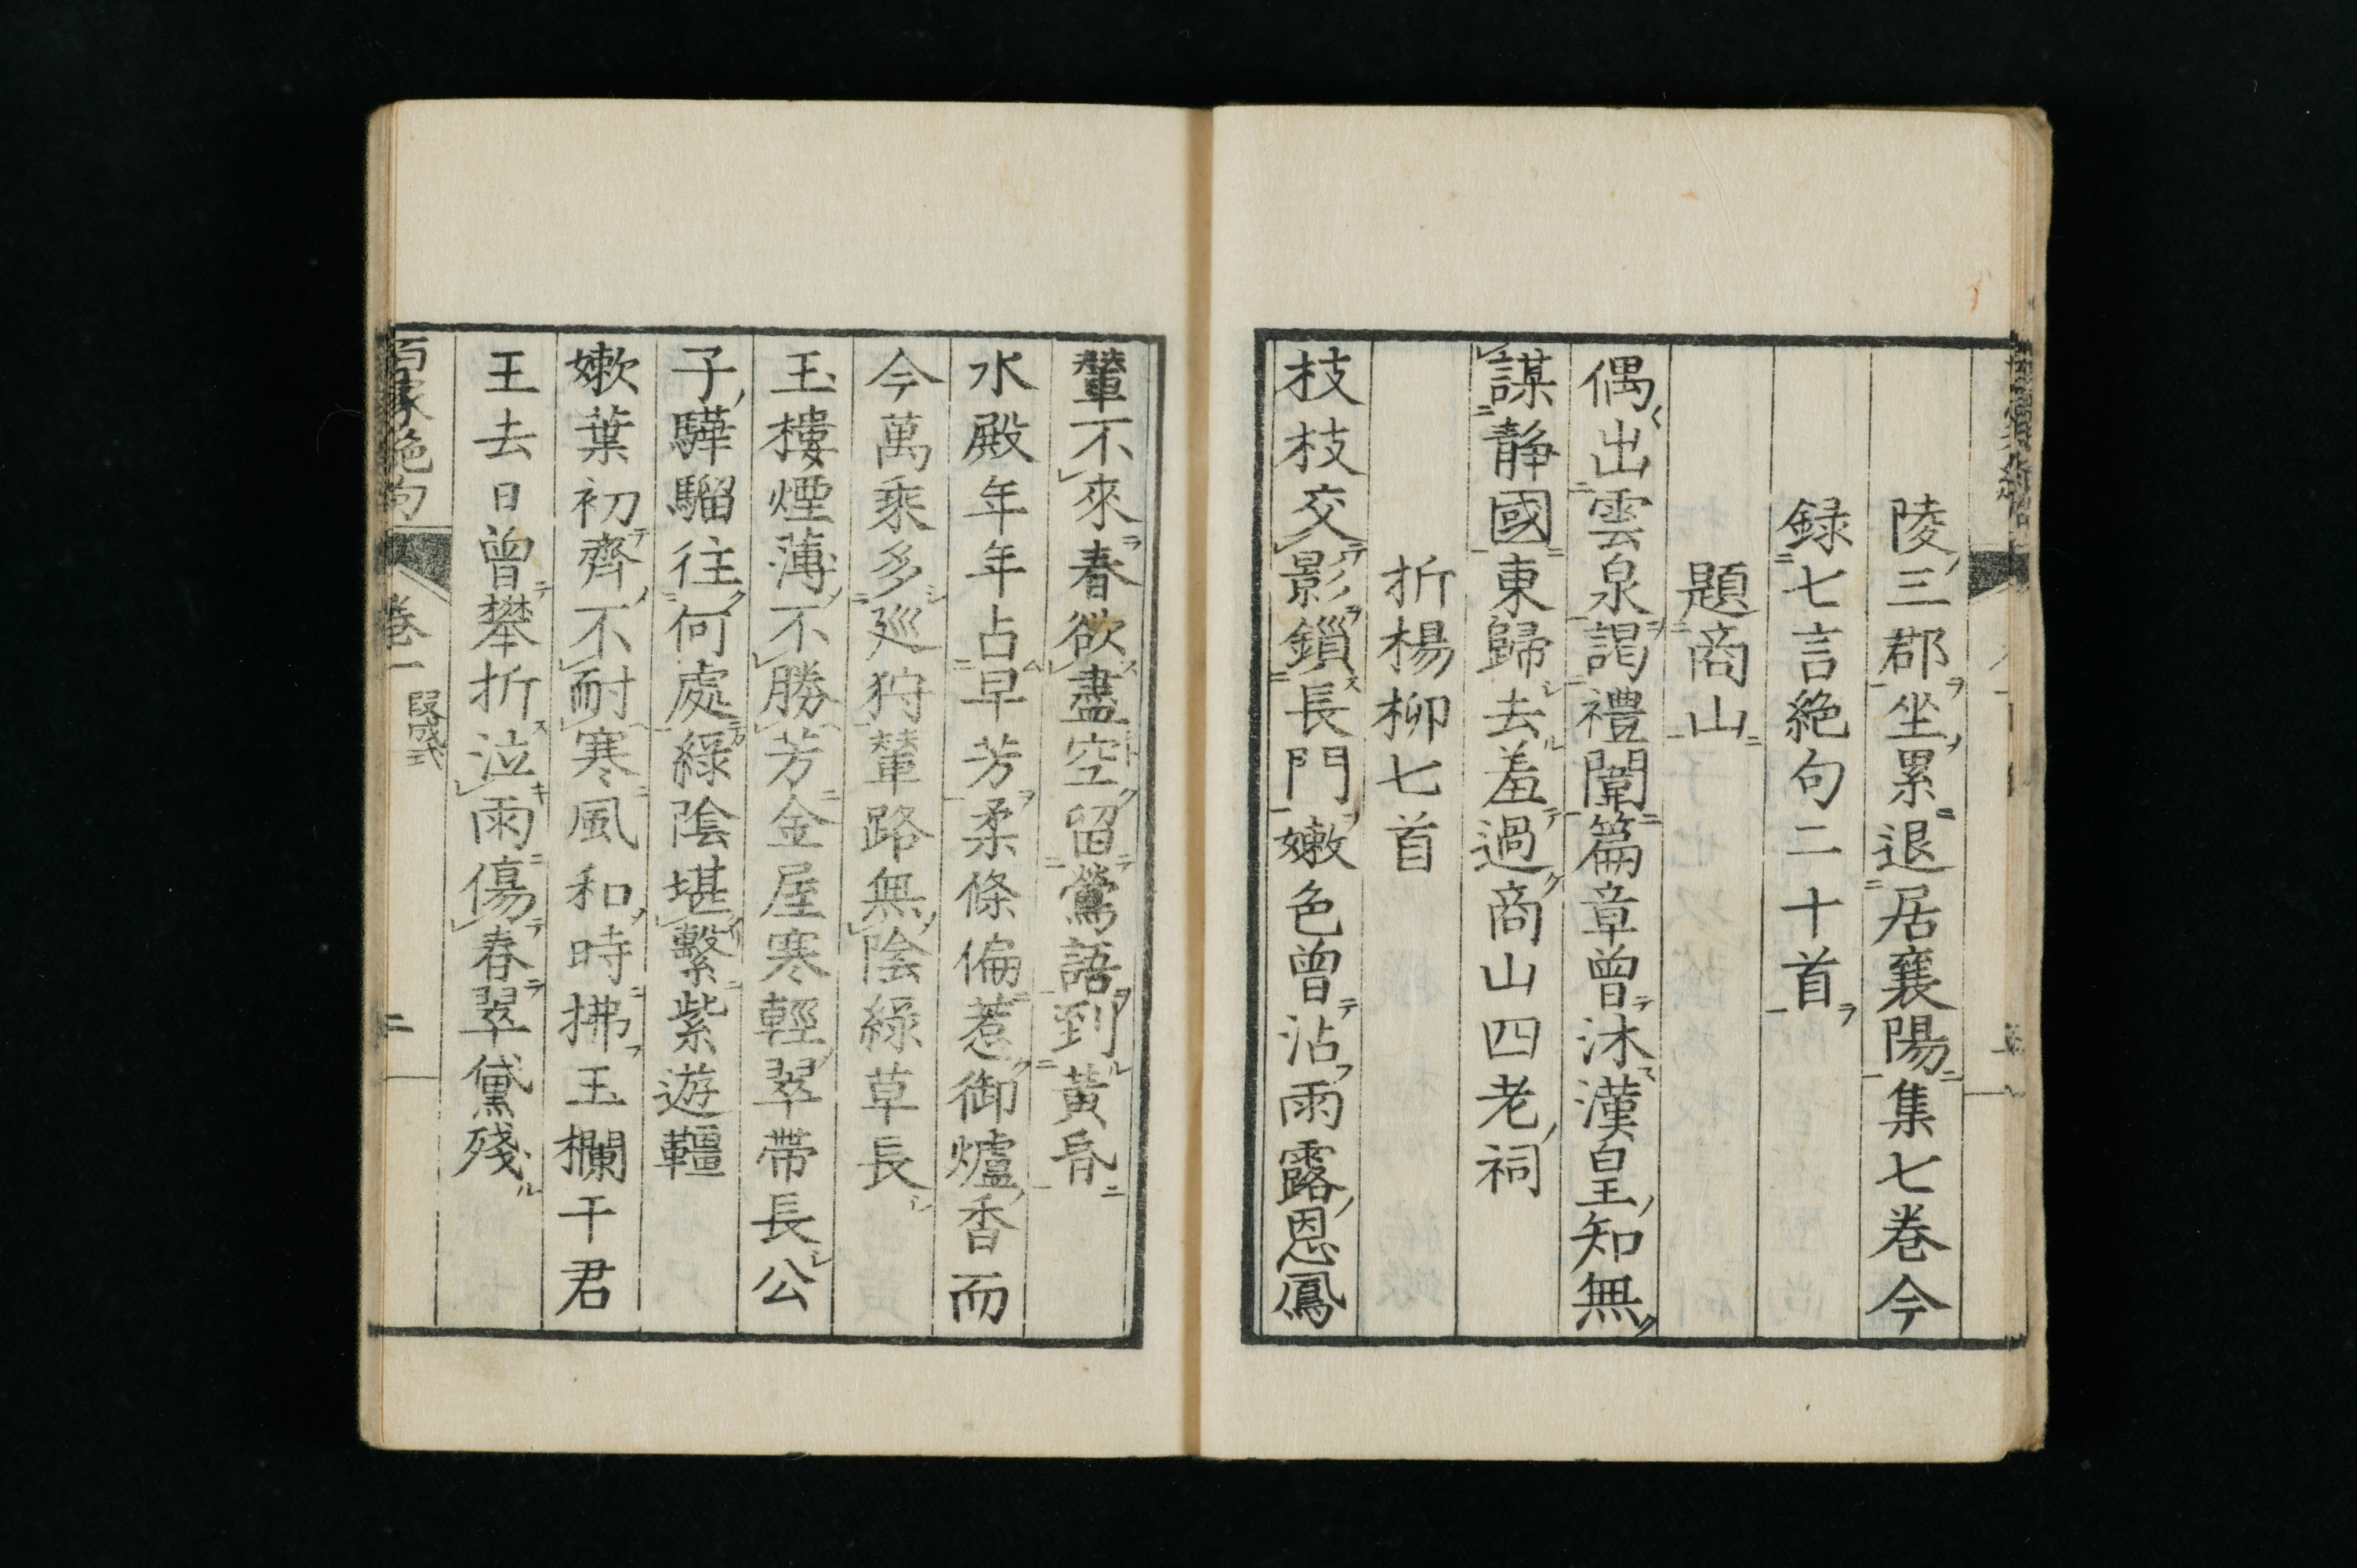 陵三郡坐累退居襄陽集七卷今
録七言絶句二十首
題商山
偶出雲泉謁禮闈篇章曾沐漢皇知無
謀静國東歸去羞過商山四老祠
折楊柳七首
枝枝交影鎖長門嫩色曾沾雨露恩鳳
輦不來春欲盡空留鶯語到黃昏
水殿年年占早芳柔條偏惹御爐香而
今萬乘多巡狩輦路無陰綠草長
玉樓煙薄不勝芳金屋寒輕翠帶長公
子驊騮往何處綠陰堪繫紫遊韁
嫩葉初齊不耐寒風和時拂玉欄干君
王去日曾攀折泣雨傷春翠黛殘
百家絶句
卷一
段成式
二